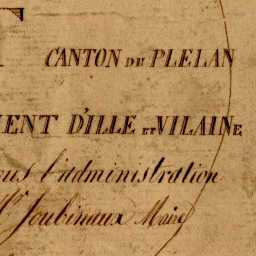 CANTON DU PLELAN
MENT D'ILLE ET VILAINE
ous l'administration
Mr Joubinaux Maire